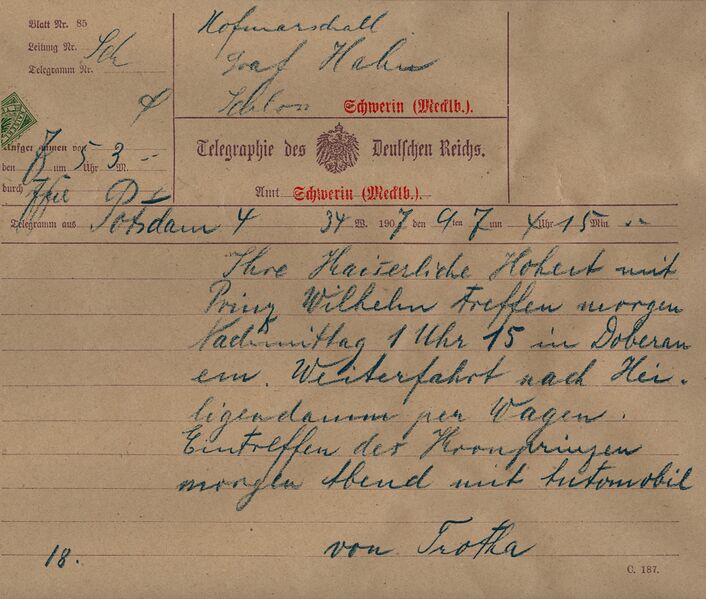 Blatt Nr. 85
Leitung Nr. Sch
Telegramm Nr.
Hofmarschall
Graf Hahn
Schloss Schwerin (Mecklb.)
Telegraphie des Deutschen Reichs.
Amt Schwerin (Mecklb.)
Aufgenommen von
den 7 um 5 Uhr 3 M.
durch
Telegramm aus Potsdam 4 34 W. 1907 den 9ten 7 um 4 Uhr 15 Min.
Ihre Kaiserliche Hoheit mit
Prinz Wilhelm treffen morgen
Nachmittag 1 Uhr 15 in Doberan
ein. Weiterfahrt nach Hei-
ligendamm per Wagen.
Eintreffen des Kronprinzen
morgen Abend mit Automobil
von Trotha
18.
C. 187.